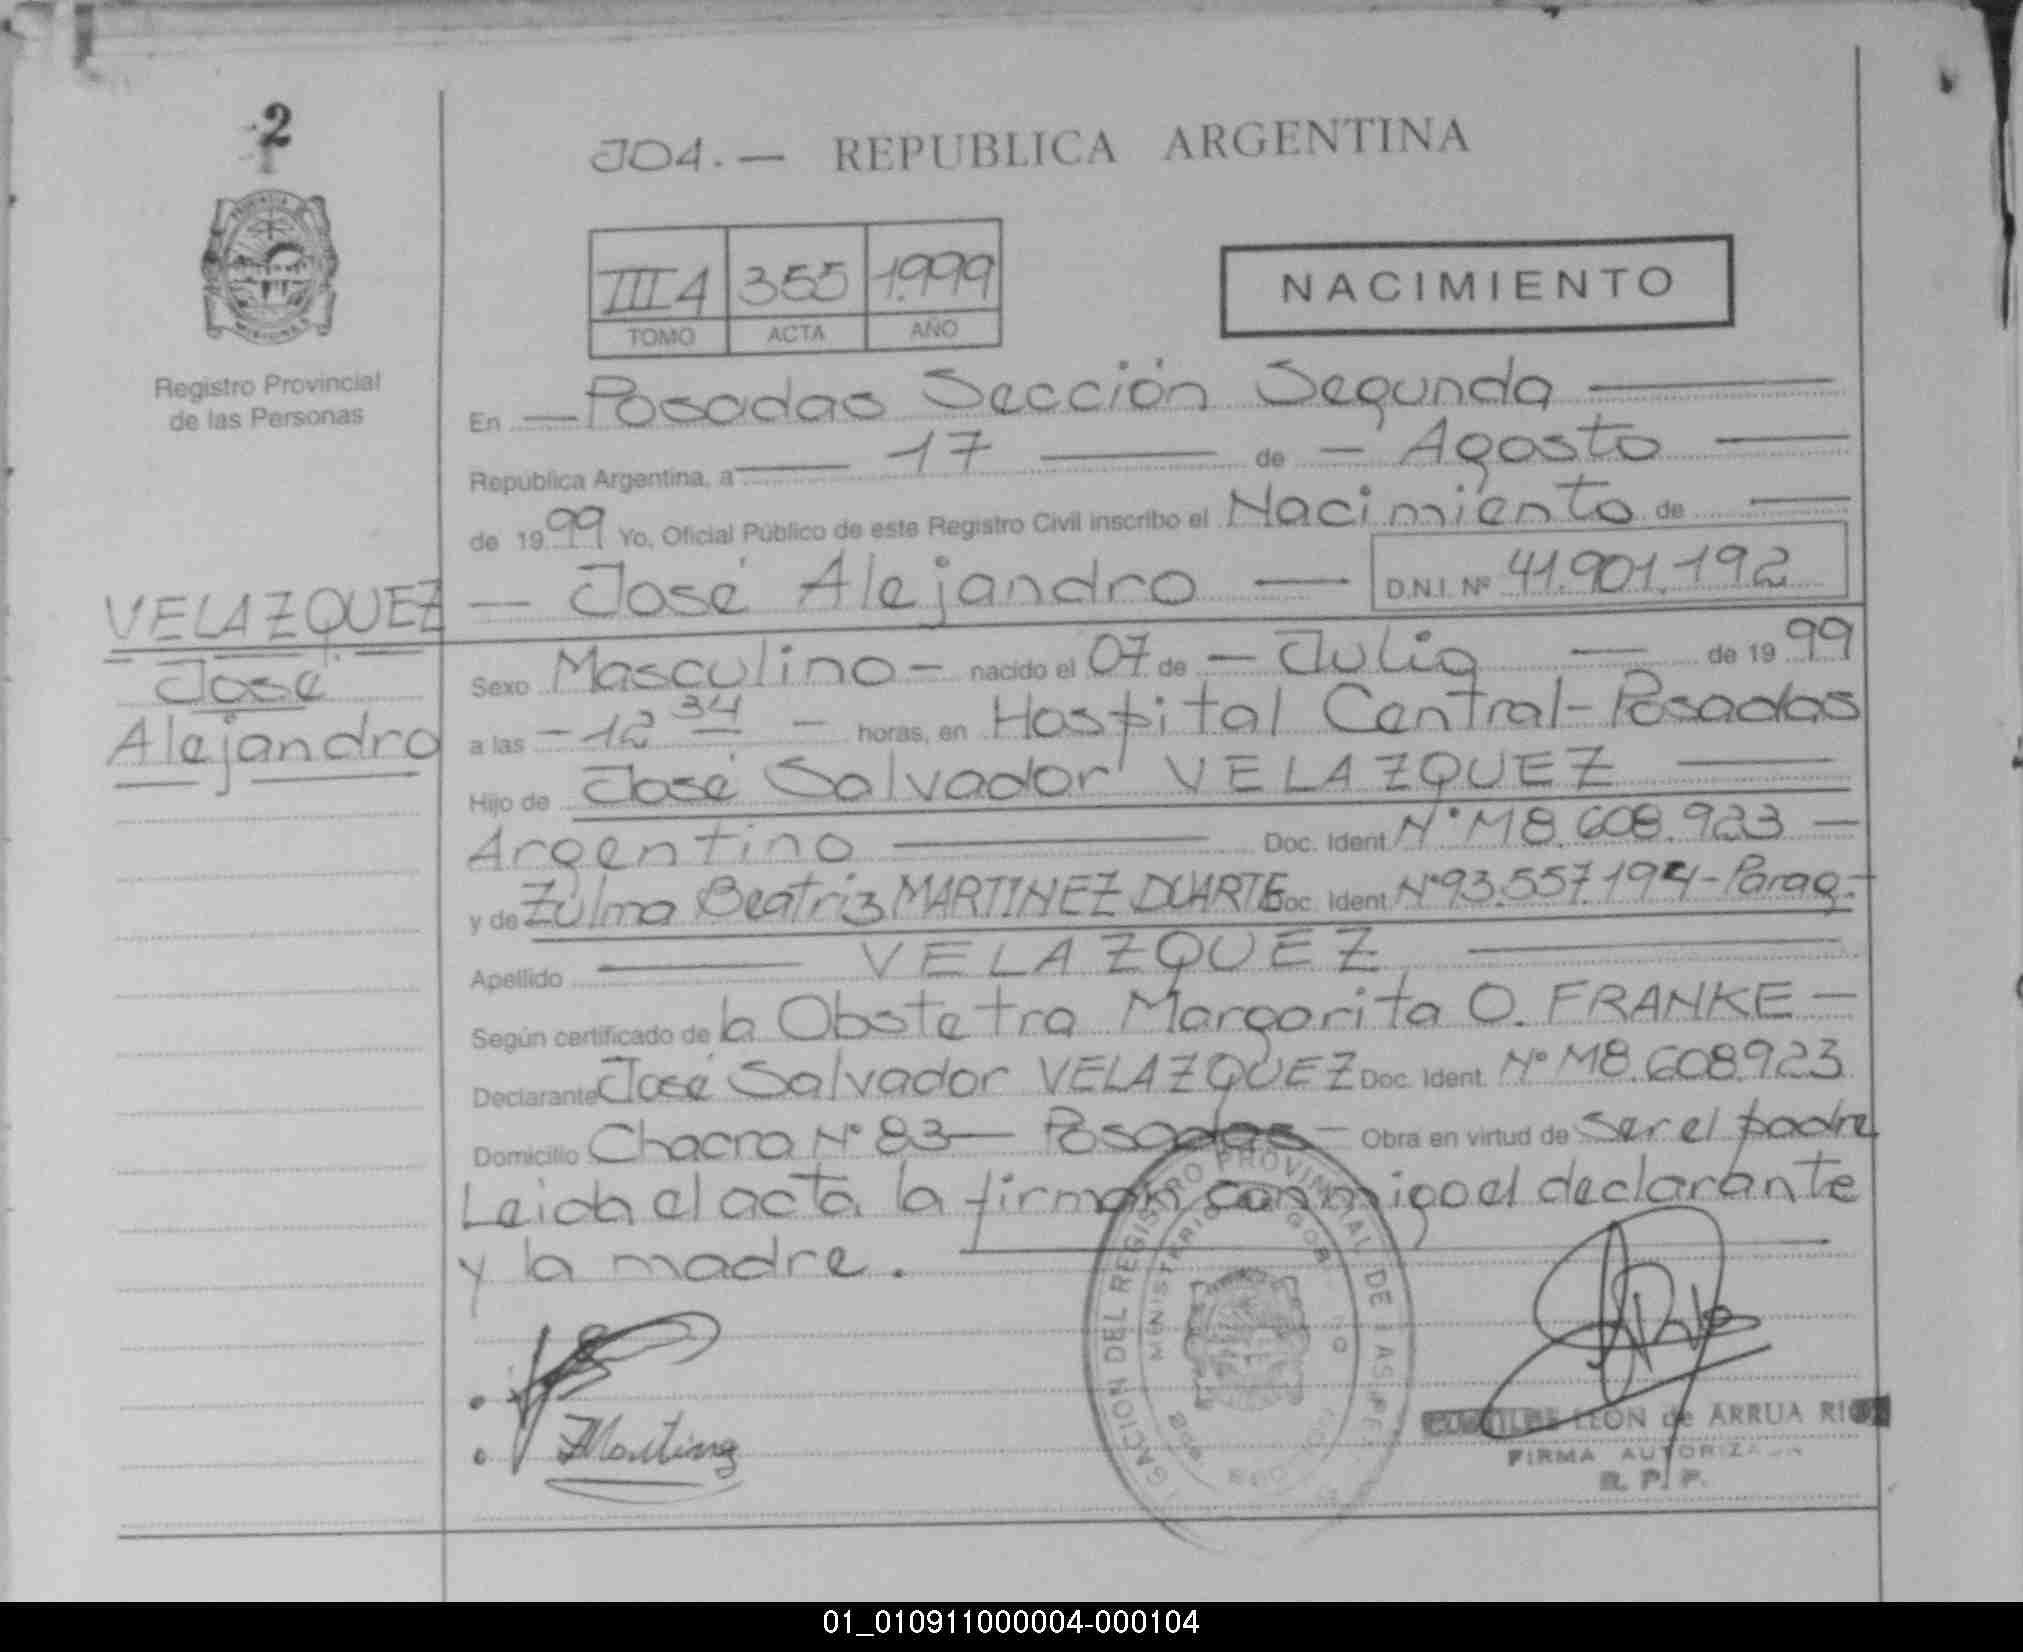 2
J04.— REPUBLICA ARGENTINA
III 4 355 1.999
TOMO ACTA AÑO
NACIMIENTO
Registro Provincial
de las Personas
En — Posadas Sección Segunda —
República Argentina, a — 17 — de — Agosto —
de 1999 Yo, Oficial Público de este Registro Civil inscribo el Nacimiento de —
VELAZQUEZ — José Alejandro — D.N.I. Nº 41.901.192
José
Alejandro
Sexo Masculino — nacido el 07 de — Julio — de 1999
a las — 12 34 — horas, en Hospital Central - Posadas
Hijo de José Salvador VELAZQUEZ —
Argentino — Doc. Ident. Nº M8.608.923 —
y de Zulma Beatriz MARTINEZ DUARTE Doc. Ident. Nº 93.557.194 - Parag.-
Apellido — VELAZQUEZ —
Según certificado de la Obstetra Margarita O. FRANKE —
Declarante José Salvador VELAZQUEZ Doc. Ident. Nº M8.608.923
Domicilio Chacra Nº 83 — Posadas — Obra en virtud de ser el padre
Leida el acta la firman conmigo el declarante
y la madre.
REGISTRO PROVINCIAL DE LAS
MINISTERIO
ZMartinez
LEON de ARRUA RIOS
FIRMA AUTORIZADA
R. P. P.
01_010911000004-000104